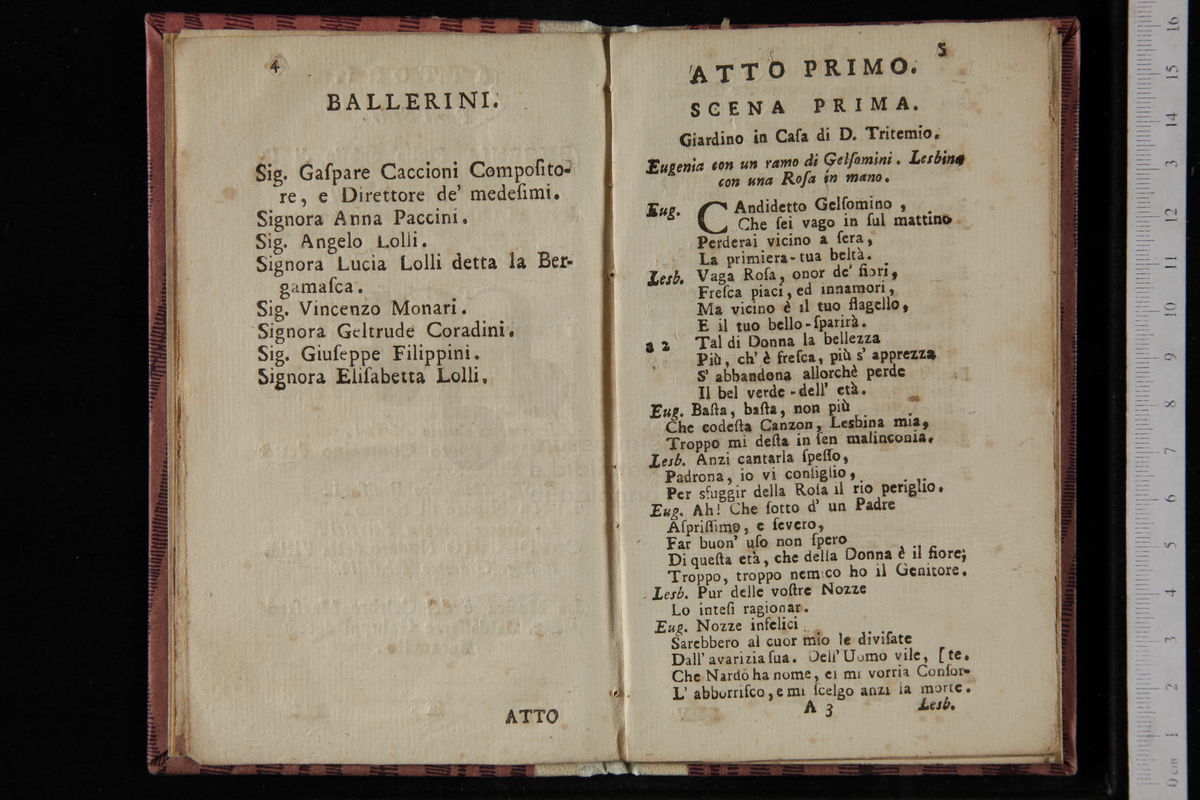 4
BALLERINI.
Sig. Gaſpare Caccioni Compoſito-
re, e Direttore de' medeſimi.
Signora Anna Paccini.
Sig. Angelo Lolli.
Signora Lucia Lolli detta la Ber-
gamaſca.
Sig. Vincenzo Monari.
Signora Geltrude Coradini.
Sig. Giuſeppe Filippini.
Signora Eliſabetta Lolli.
ATTO
5
ATTO PRIMO.
SCENA PRIMA.
Giardino in Caſa di D. Tritemio.
Eugenia con un ramo di Gelſomini. Lesbina
con una Roſa in mano.
Eug. CAndidetto Gelſomino,
Che ſei vago in ſul mattino
Perderai vicino a ſera,
La primiera-tua beltà.
Lesb. Vaga Roſa, onor de' fiori,
Freſca piaci, ed innamori,
Ma vicino è il tuo flagello,
E il tuo bello-ſparirà.
a 2 Tal di Donna la bellezza
Più, ch' è freſca, più s' apprezza
S' abbandona allorchè perde
Il bel verde-dell' età.
Eug. Baſta, baſta, non più
Che codeſta Canzon, Lesbina mia,
Troppo mi deſta in ſen malinconia.
Lesb. Anzi cantarla ſpeſſo,
Padrona, io vi conſiglio,
Per sfuggir della Roſa il rio periglio.
Eug. Ah! Che ſotto d' un Padre
Aſpriſſimo, e ſevero,
Far buon' uſo non ſpero
Di queſta età, che della Donna è il fiore;
Troppo, troppo nemico ho il Genitore.
Lesb. Pur delle voſtre Nozze
Lo inteſi ragionar.
Eug. Nozze infelici
Sarebbero al cuor mio le diviſate
Dall' avarizia ſua. Dell' Uomo vile, [te.
Che Nardo ha nome, ei mi vorria Conſor-
L' abborriſco, e mi ſcelgo anzi la morte.
A 3 Lesb.